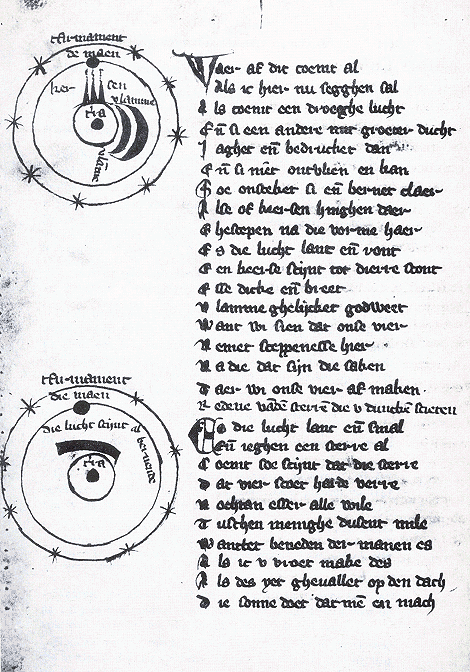 tfirmament
de maen
hier
sen
vlamme
t'ra
vlāme
tfirmament
die maen
die lucht scijnt al
bernende
t'ra
Waer af dit coemt al
Als ic hier nu segghen sal
Als coemt een droeghe lucht
Eñ si een andere met groeter ducht
Iaghet eñ bedrucket dan
Eñ si niet ontvlien en kan
Soe onsteket si eñ bernet claer
Alse of kaersen hinghen daer
Ghescepen na die vorme haer
Es die lucht lanc eñ ront
En keerse scijnt tot dierre stont
Esse dicke eñ breet
Vlamme ghelijcket godweet
Want wi sien dat onse vier
Nemet sceppenesse hier
Na die dat sijn die saken
Daer wi onse vier af maken
Es die lucht lanc eñ smal
Eñ ieghen een sterre al
Coemt soe scijnt dat die sterre
Dat vier scoet harde verre
Nochtan esser alle wile
Tusschen menighe dusent mile
Wantet beneden der manen es
Als ic v vroet make des
Als des yet ghevallet op den dach
Die sonne doet datmē en mach